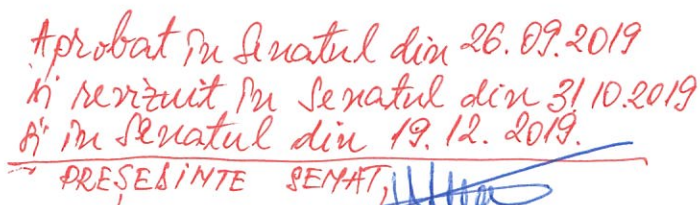 Aprobat în Senatul din 26.09.2019
și revizuit în Senatul din 31 10.2019
și în Senatul din 19.12.2019.
PREȘEDINTE SENAT,